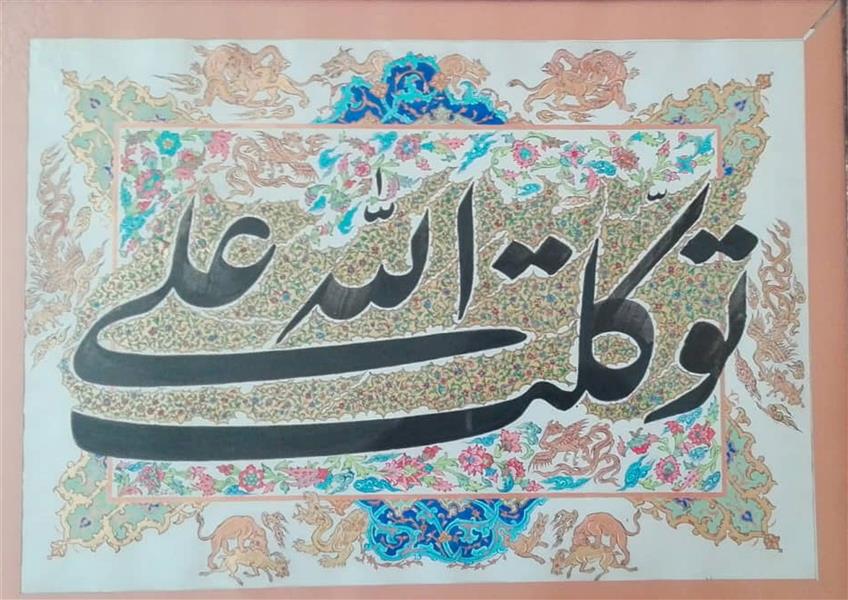 توکّلت علی اللّٰه